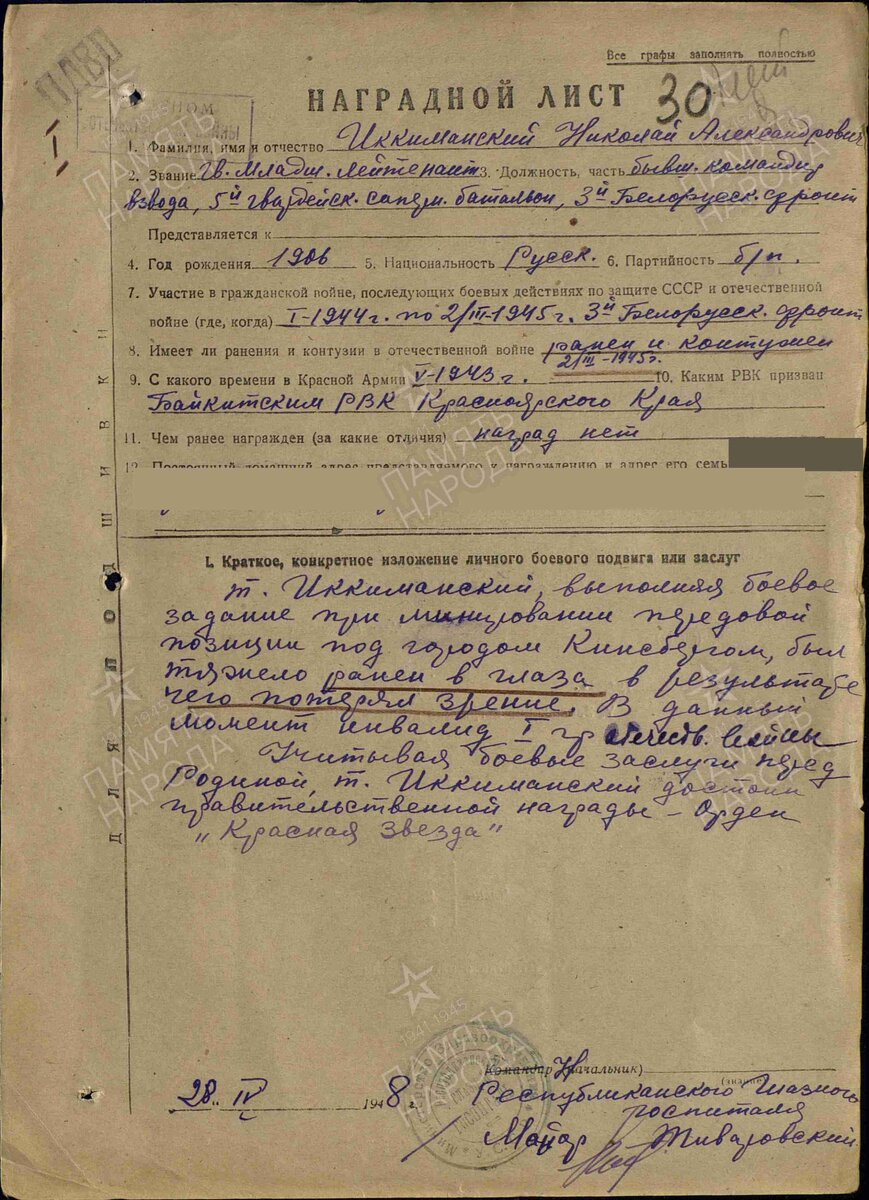 Все графы заполнять полностью
НАГРАДНОЙ ЛИСТ 30
1. Фамилия, имя и отчество Иккиманский Николай Александрович
2. Звание Гв. Младш. Лейтенант 3. Должность, часть бывш. командир
взвода, 5й гвардейск. сапёрн. батальон, 3й Белорусск. фронт
Представляется к
4. Год рождения 1906 5. Национальность Русск. 6. Партийность б/п.
7. Участие в гражданской войне, последующих боевых действиях по защите СССР и отечественной
войне (где, когда) I-1944г. по 2/III-1945г. 3й Белорусск. фронт
8. Имеет ли ранения и контузии в отечественной войне ранен и контужен
2/III-1945г.
9. С какого времени в Красной Армии V-1943г. 10. Каким РВК призван
Байкитским РВК Красноярского Края
11. Чем ранее награжден (за какие отличия) наград нет
12. Постоянный домашний адрес представляемого к награждению и адрес его семь
I. Краткое, конкретное изложение личного боевого подвига или заслуг
т. Иккиманский, выполняя боевое
задание при минировании передовой
позиции под городом Кинсбергом, был
тяжело ранен в глаза в результате
чего потерял зрение. В данный
момент инвалид I гр отечеств. войны
Учитывая боевые заслуги перед
Родиной, т. Иккиманский достоин
правительственной награды – Орден
„Красная Звезда"
ДЛЯ ПОДШИВКИ
Командир (Начальник)
(звание)
28 IV 1948 г. Республиканского Глазного
госпиталя
Майор Живаровский
ПАМЯТЬ НАРОДА
1941-1945